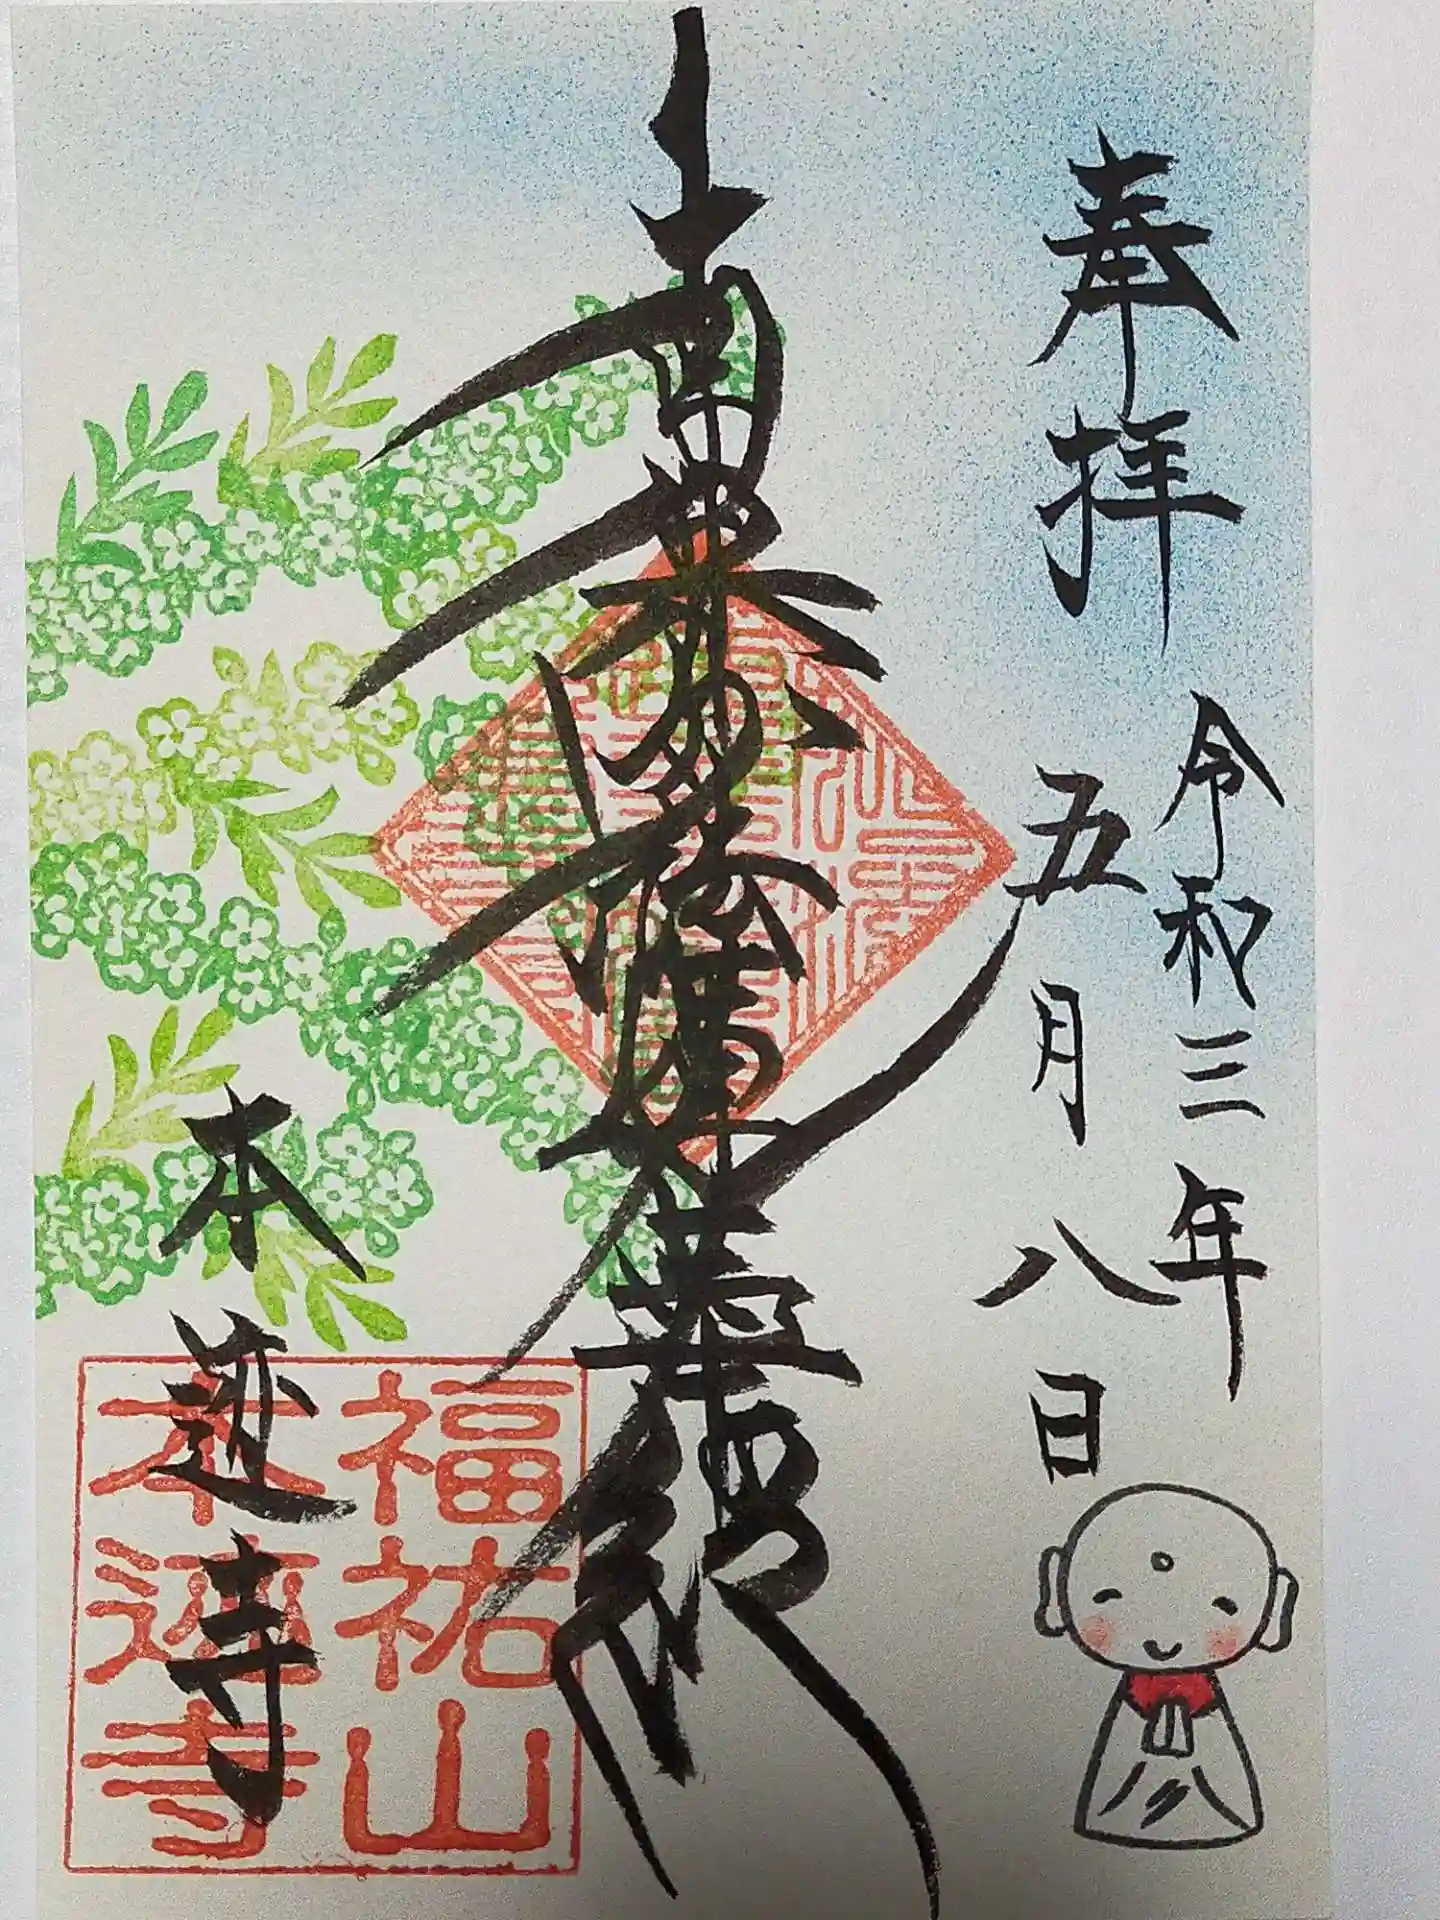 奉拝
令和三年
五月八日
南無妙法蓮華経
本迹寺
福祐山
本迹寺